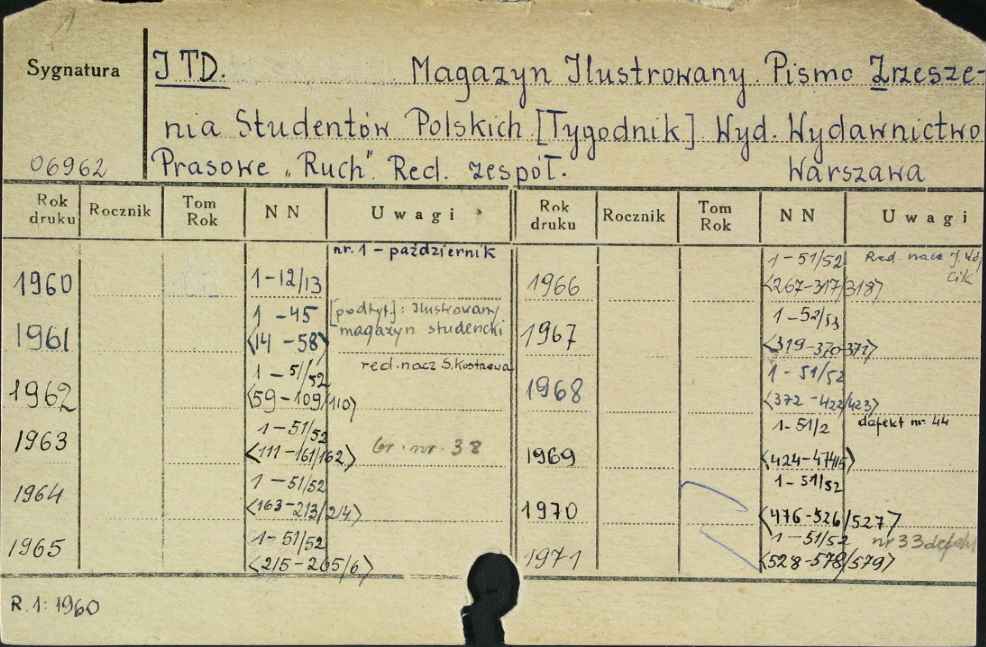 Sygnatura
ITD. Magazyn Ilustrowany. Pismo Zrzesze-
nia Studentów Polskich. [Tygodnik] Wyd. Wydawnictwo
06962 Prasowe „Ruch". Red. zespół. Warszawa
Rok druku Rocznik Tom Rok NN Uwagi Rok druku Rocznik Tom Rok NN Uwagi
nr. 1 - październik
1960 1-12/13
1961 1-45 [podtyt]: Ilustrowany
<14-58> magazyn studencki
1962 1-51/52 red. nacz S. Kostrzewa
<59-109/110>
1963 1-51/52
<111-161/162> br. nr. 38
1964 1-51/52
<163-213/214>
1965 1-51/52
<215-265/6>
1966 1-51/52 Red. nacz
<267-317/318>
1967 1-52/53
<319-370/371>
1968 1-51/52
<372-422/423>
1969 1-51/2 defekt nr. 44
<424-474/5>
1970 1-51/52
<476-526/527>
1971 1-51/52 nr 33 defekt
<528-578/579>
R. 1: 1960